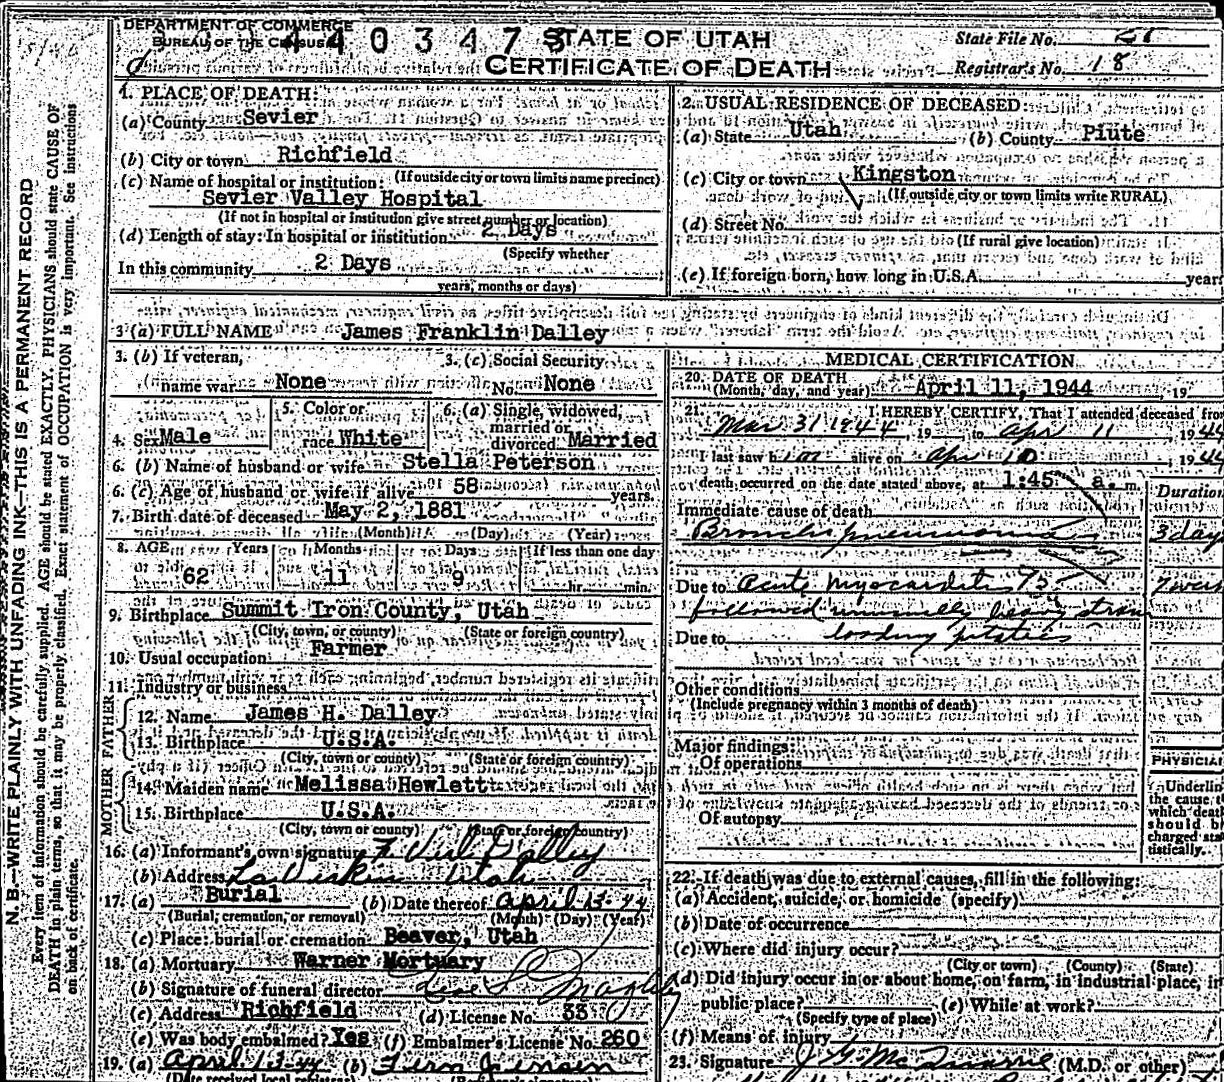 DEPARTMENT OF COMMERCE
BUREAU OF THE CENSUS
4 4 0 3 4 7 3
STATE OF UTAH
CERTIFICATE OF DEATH
State File No.
Registrar's No. 18
1. PLACE OF DEATH:
(a) County Sevier
(b) City or town Richfield
(If outside city or town limits name precinct)
(c) Name of hospital or institution:
Sevier Valley Hospital
(If not in hospital or institution give street number or location)
(d) Length of stay: In hospital or institution 2 Days
(Specify whether
In this community 2 Days
years, months or days)
2. USUAL RESIDENCE OF DECEASED:
(a) State Utah (b) County Piute
(c) City or town Kingston
(If outside city or town limits write RURAL)
(d) Street No.
(If rural give location)
(e) If foreign born, how long in U.S.A. year
3 (a) FULL NAME James Franklin Dalley
3. (b) If veteran,
name war None
3. (c) Social Security
No. None
4. Sex Male
5. Color or
race White
6. (a) Single, widowed,
married or
divorced Married
6. (b) Name of husband or wife Stella Peterson
6. (c) Age of husband or wife if alive 58 years.
7. Birth date of deceased May 2, 1881
(Month) (Day) (Year)
8. AGE Years Months Days If less than one day
62 11 9 hr. min.
9. Birthplace Summit Iron County, Utah
(City, town, or county) (State or foreign country)
10. Usual occupation Farmer
11. Industry or business
FATHER
12. Name James H. Dalley
13. Birthplace U.S.A.
(City, town or county) (State or foreign country)
MOTHER
14. Maiden name Melissa Hewlett
15. Birthplace U.S.A.
(City, town or county) (State or foreign country)
16. (a) Informant's own signature Dalley
(b) Address LaVerkin Utah
17. (a) Burial (b) Date thereof April 13-44
(Burial, cremation, or removal) (Month) (Day) (Year)
(c) Place: burial or cremation Beaver, Utah
18. (a) Mortuary Warner Mortuary
(b) Signature of funeral director
(c) Address Richfield (d) License No. 33
(e) Was body embalmed? Yes (f) Embalmer's License No. 260
19. (a) April 13-44 (b) Fern Jensen
(Date received local registrar)
MEDICAL CERTIFICATION
20. DATE OF DEATH
(Month, day, and year) April 11, 1944, 19
21. I HEREBY CERTIFY, That I attended deceased from
Mar 31 1944, 19 to Apr 11, 1944
I last saw him alive on Apr 10, 1944
death occurred on the date stated above, at 1:45 a. m.
Duration
Immediate cause of death
Broncho pneumonia 3 days
Due to Acute Myocarditis
followed unusually heavy strain
Due to loading potatoes
Other conditions
(Include pregnancy within 3 months of death)
Major findings:
Of operations
Of autopsy
PHYSICIAN
Underline
the cause t
which death
should b
charged sta
tistically.
22. If death was due to external causes, fill in the following:
(a) Accident, suicide, or homicide (specify)
(b) Date of occurrence
(c) Where did injury occur?
(City or town) (County) (State)
(d) Did injury occur in or about home, on farm, in industrial place, in
public place? (e) While at work?
(Specify type of place)
(f) Means of injury
23. Signature (M.D. or other)
N. B.—WRITE PLAINLY WITH UNFADING INK—THIS IS A PERMANENT RECORD
Every item of information should be carefully supplied. AGE should be stated EXACTLY. PHYSICIANS should state CAUSE OF
DEATH in plain terms, so that it may be properly classified. Exact statement of OCCUPATION is very important. See instructions
on back of certificate.